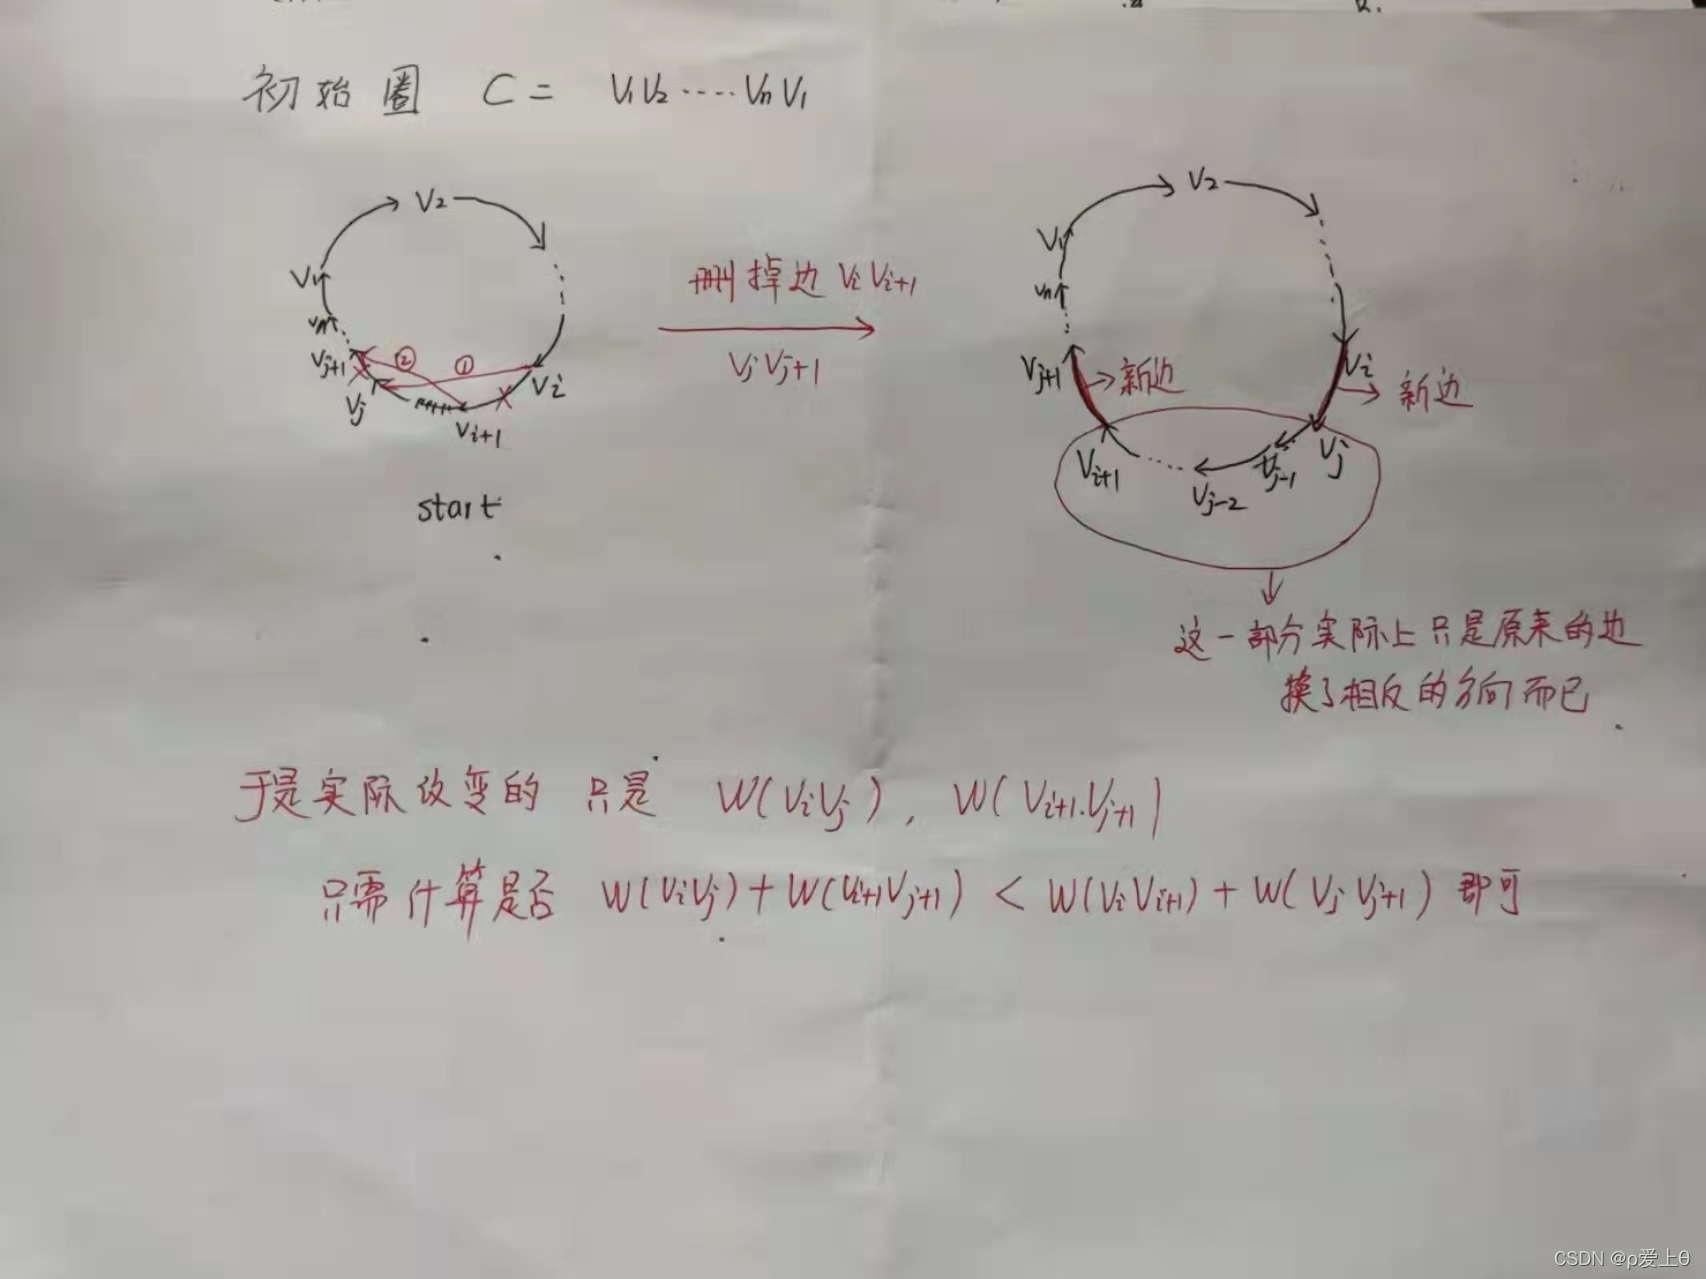 初始圈 C = V₁V₂ ····· VₙV₁
V₂
V₁
Vₙ
Vⱼ₊₁ ② ①
Vⱼ Vᵢ
Vᵢ₊₁
start
删掉边 VᵢVᵢ₊₁
VⱼVⱼ₊₁
V₂
V₁
Vₙ
Vⱼ₊₁ 新边 Vᵢ 新边
Vᵢ₊₁ Vⱼ₋₂ Vⱼ₋₁ Vⱼ
这一部分实际上只是原来的边
换了相反的方向而已
于是实际改变的 只是 W(VᵢVⱼ), W(Vᵢ₊₁.Vⱼ₊₁)
只需计算是否 W(VᵢVⱼ)+W(Vᵢ₊₁Vⱼ₊₁) < W(VᵢVᵢ₊₁)+W(VⱼVⱼ₊₁) 即可
CSDN @ρ爱上θ